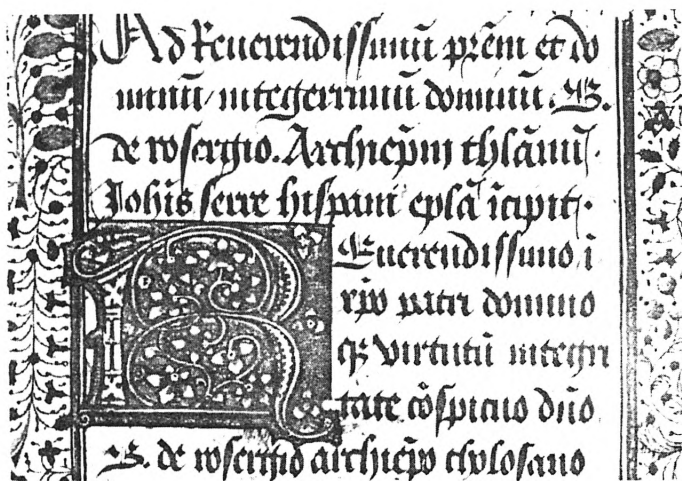 Ad Reuerendissimū prēm et do
minū integerrimū dominū. B.
de rosergio. Archiep̄m thl̄anū.
Joh̄is serre hispani epl̄a īcipit.
Reuerendissimo ī
xp̄o patri domino
qꝫ virtutū integri
tate cōspicuo dn̄o
B. de rosergio archiep̄o tholosano